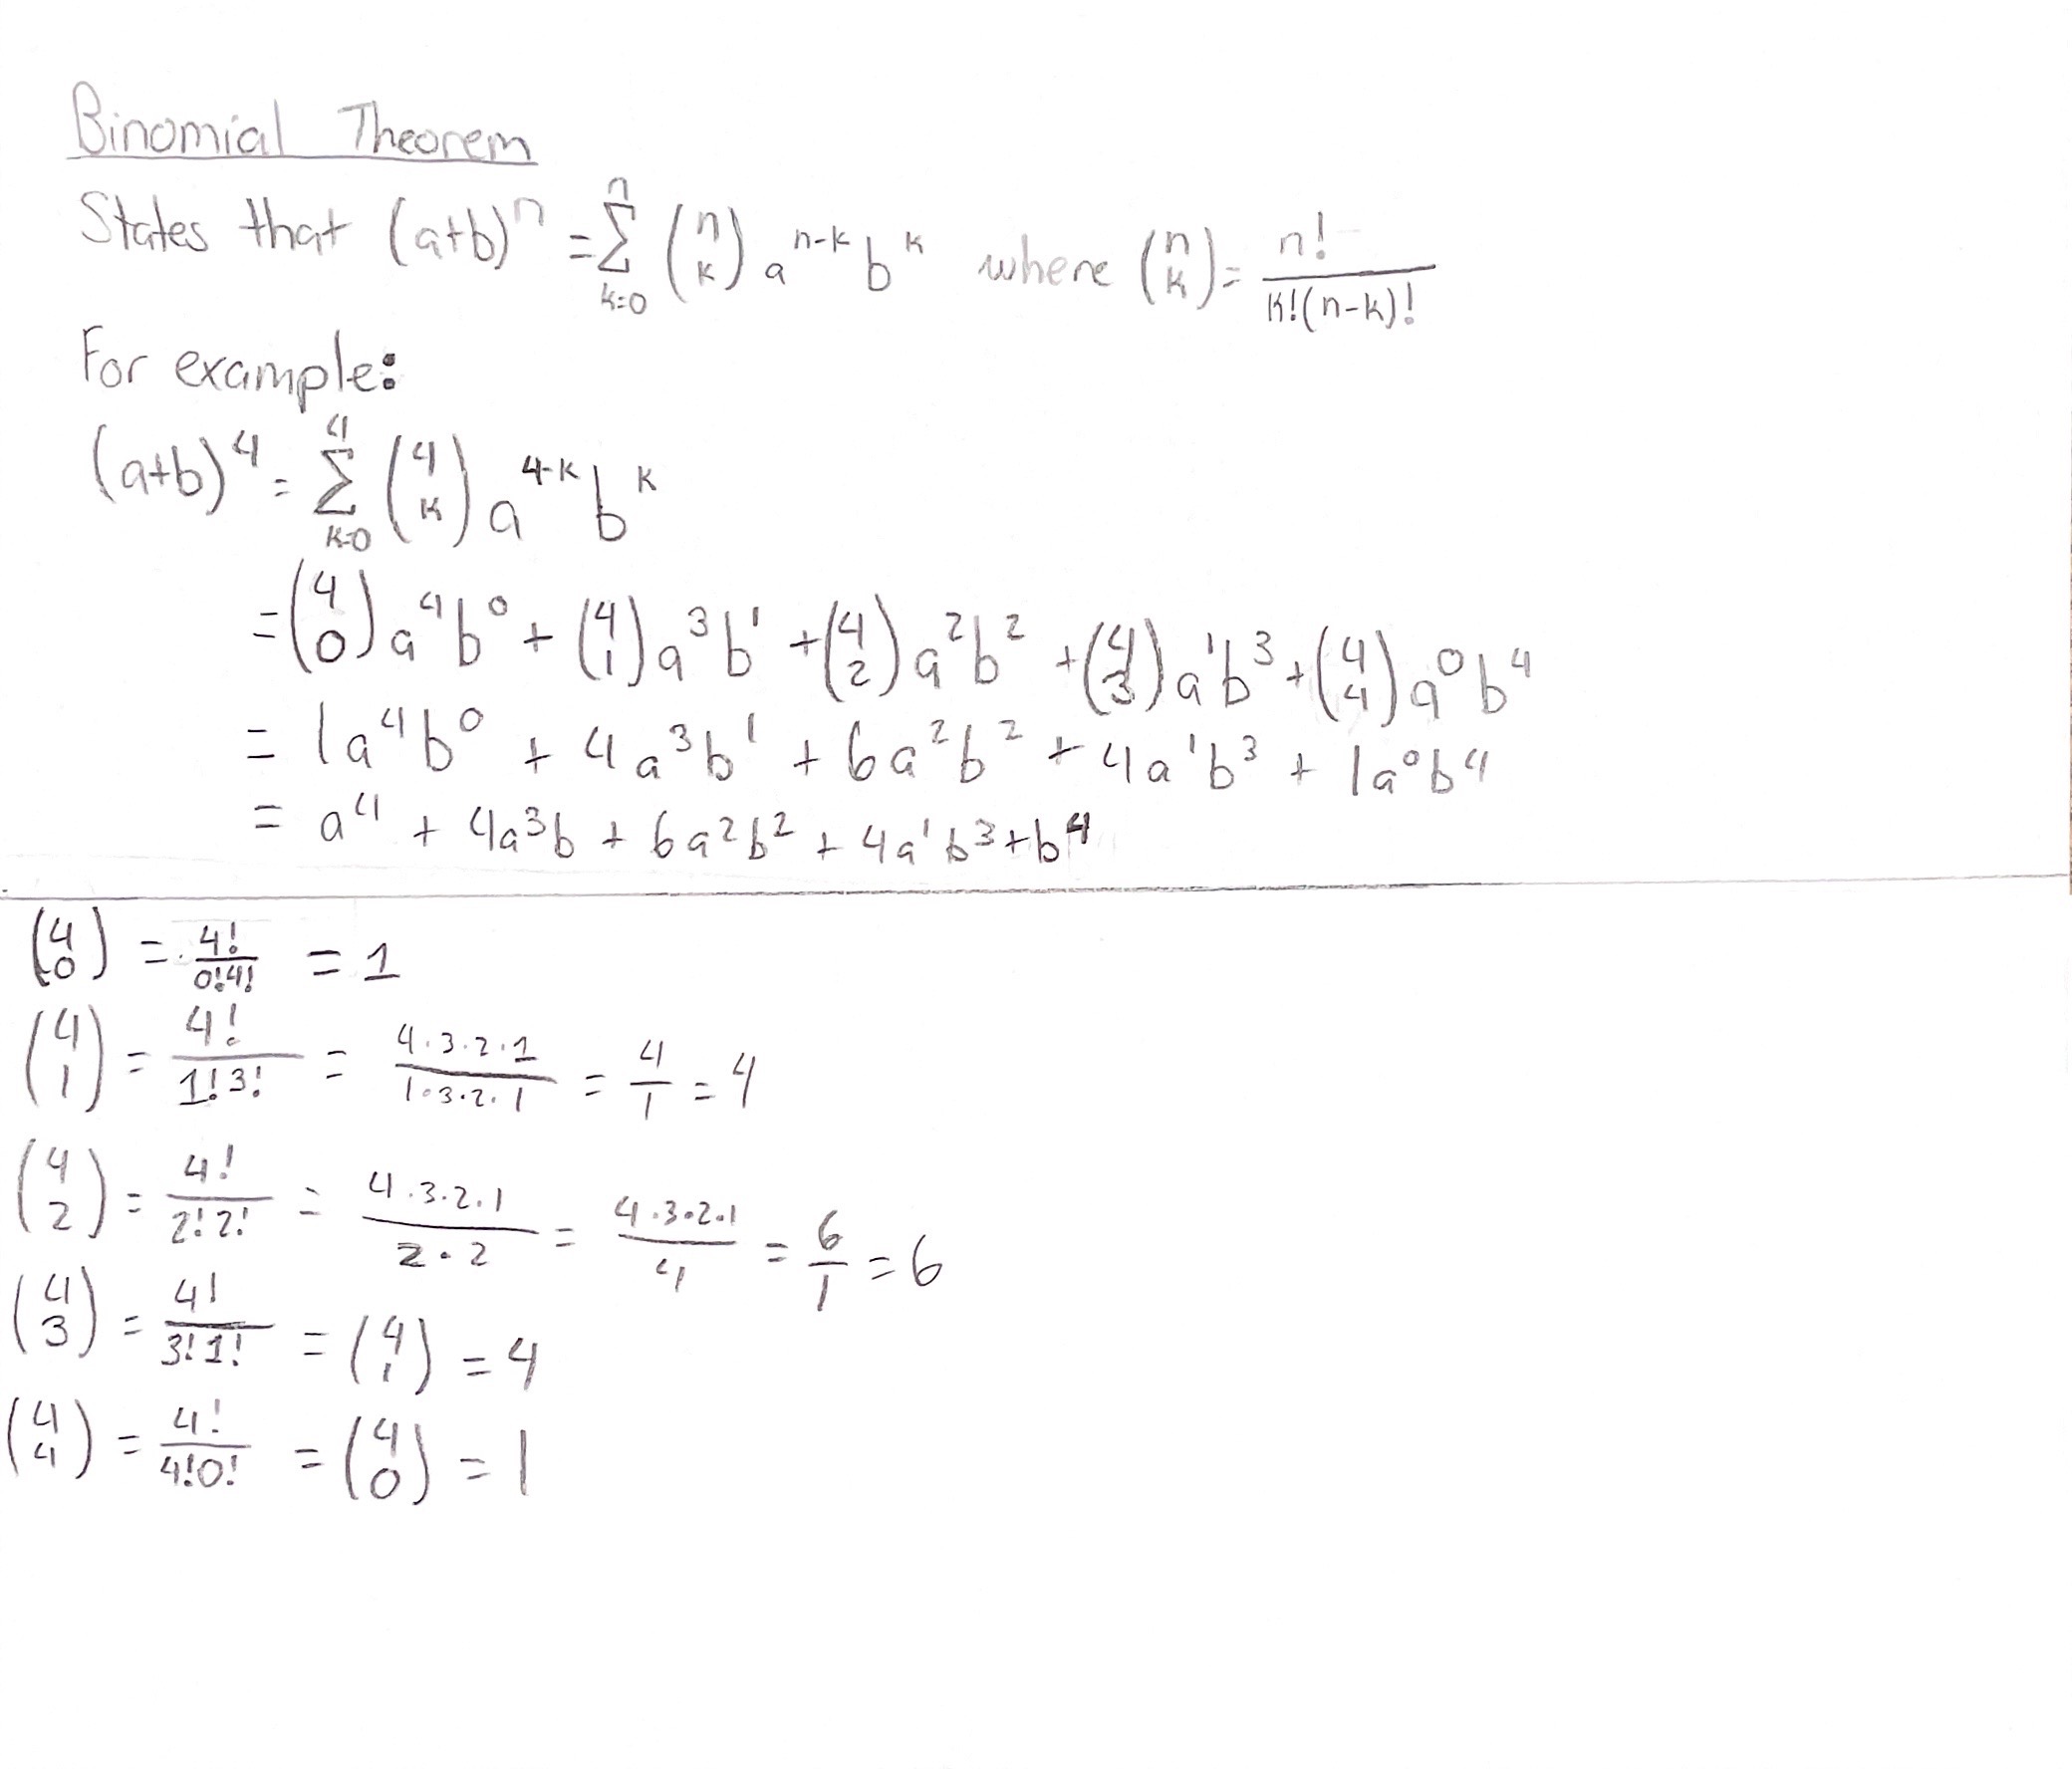 Binomial Theorem
States that (a+b)^n = \sum_{k=0}^{n} \binom{n}{k} a^{n-k} b^k where \binom{n}{k} = \frac{n!}{k!(n-k)!}
For example:
(a+b)^4 = \sum_{k=0}^{4} \binom{4}{k} a^{4-k} b^k
= \binom{4}{0} a^4 b^0 + \binom{4}{1} a^3 b^1 + \binom{4}{2} a^2 b^2 + \binom{4}{3} a^1 b^3 + \binom{4}{4} a^0 b^4
= 1a^4 b^0 + 4a^3 b^1 + 6a^2 b^2 + 4a^1 b^3 + 1a^0 b^4
= a^4 + 4a^3 b + 6a^2 b^2 + 4a^1 b^3 + b^4
\binom{4}{0} = \frac{4!}{0!4!} = 1
\binom{4}{1} = \frac{4!}{1!3!} = \frac{4·3·2·1}{1·3·2·1} = \frac{4}{1} = 4
\binom{4}{2} = \frac{4!}{2!2!} = \frac{4·3·2·1}{2·2} = \frac{4·3·2·1}{4} = \frac{6}{1} = 6
\binom{4}{3} = \frac{4!}{3!1!} = \binom{4}{1} = 4
\binom{4}{4} = \frac{4!}{4!0!} = \binom{4}{0} = 1